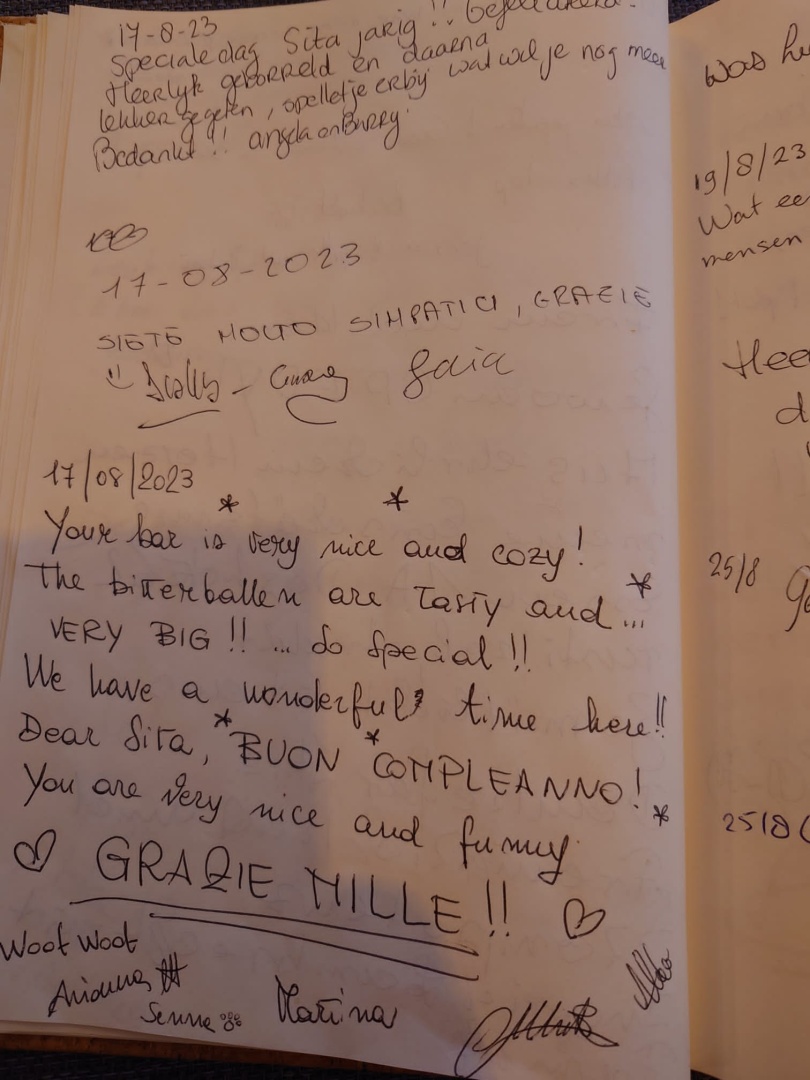 17-8-23
Speciale dag Sita jarig !!
Heerlyk geborreld en daarna
lekker gegeten, spelletje erby wat wil je nog meer
Bedankt !! angela en Barry.
17-08-2023
SIETE MOLTO SIMPATICI, GRAZIE
Gaia
17/08/2023
Your bar is *very nice* and cozy!
The bitterballen are tasty and...*
VERY BIG !! ... so special !!
We have a wonderful time here!!
Dear Sita, *BUON *COMPLEANNO!
You are very nice and funny *
♡ GRAZIE MILLE !! ♡
Woot Woot
Arianna
Senna
Martina
Was
19/8/23
Wat ee
mensen
Hee
d
25/8
25/8